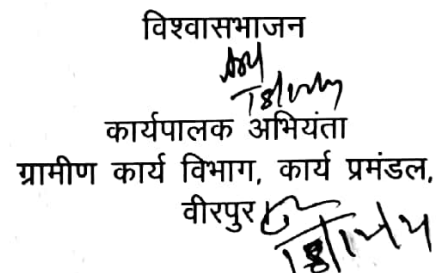 विश्वासभाजन
कार्यपालक अभियंता
ग्रामीण कार्य विभाग, कार्य प्रमंडल,
वीरपुर